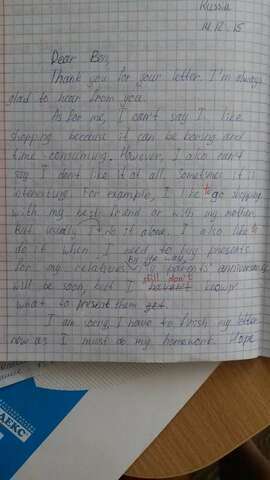 Russia
14.12.15
Dear Ben,
Thank you for your letter. I'm always
glad to hear from you.
As for me, I can't say I like
shopping because it can be boring and
time consuming. However, I also can't
say I don't like it at all. Sometimes it is
interesting. For example, I like to go shopping
with my best friend or with my mother.
But usually I do it alone. I also like
do it when I need to buy presents
for my relatives. By the way, my parents' anniversary
will be soon, but I still don't know
what to present them yet.
I am sorry, I have to finish my letter
now as I must do my homework. Hope
ДЕКС